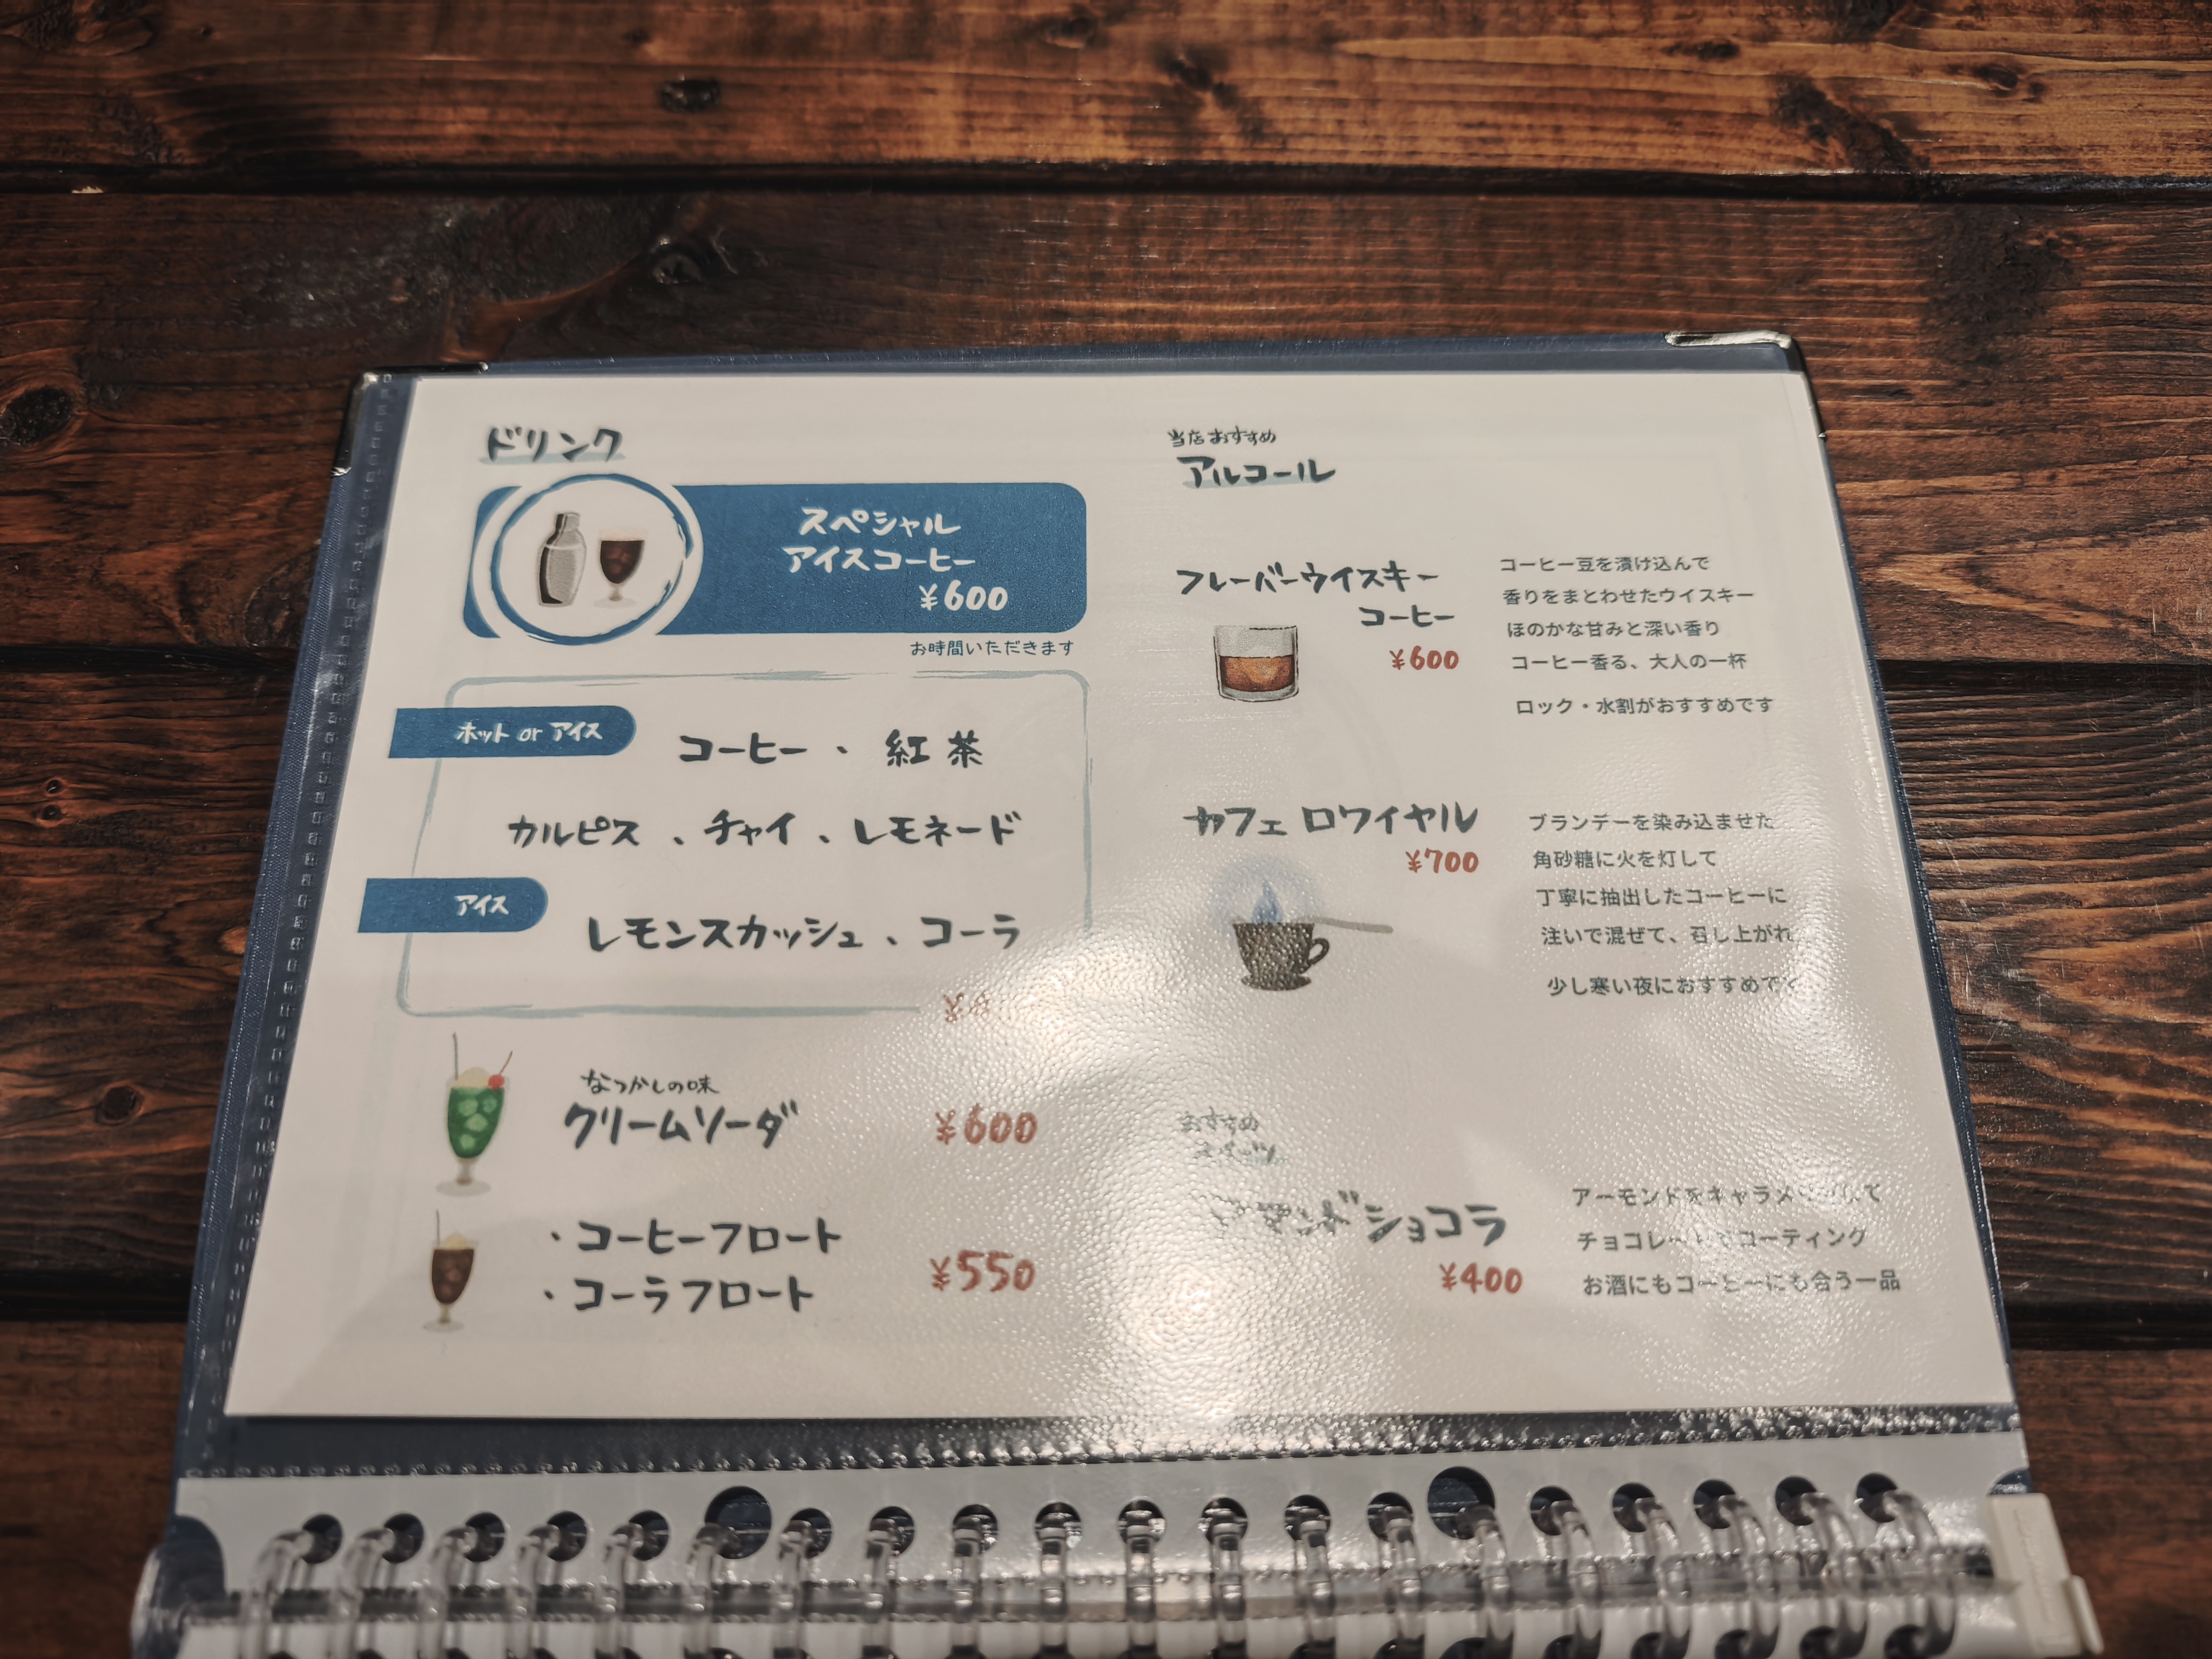 ドリンク
スペシャル
アイスコーヒー
¥600
お時間いただきます
ホット or アイス
コーヒー ・ 紅茶
カルピス 、チャイ 、レモネード
アイス
レモンスカッシュ 、コーラ
なつかしの味
クリームソーダ
¥600
・コーヒーフロート
・コーラフロート
¥550
当店おすすめ
アルコール
フレーバーウイスキー
コーヒー
¥600
コーヒー豆を漬け込んで
香りをまとわせたウイスキー
ほのかな甘みと深い香り
コーヒー香る、大人の一杯
ロック・水割がおすすめです
カフェ ロワイヤル
¥700
ブランデーを染み込ませた
角砂糖に火を灯して
丁寧に抽出したコーヒーに
注いで混ぜて、召し上がれ
少し寒い夜におすすめです
おすすめ
ショコラ
¥400
アーモンドをキャラメ
チョコレートでコーティング
お酒にもコーヒーにも合う一品